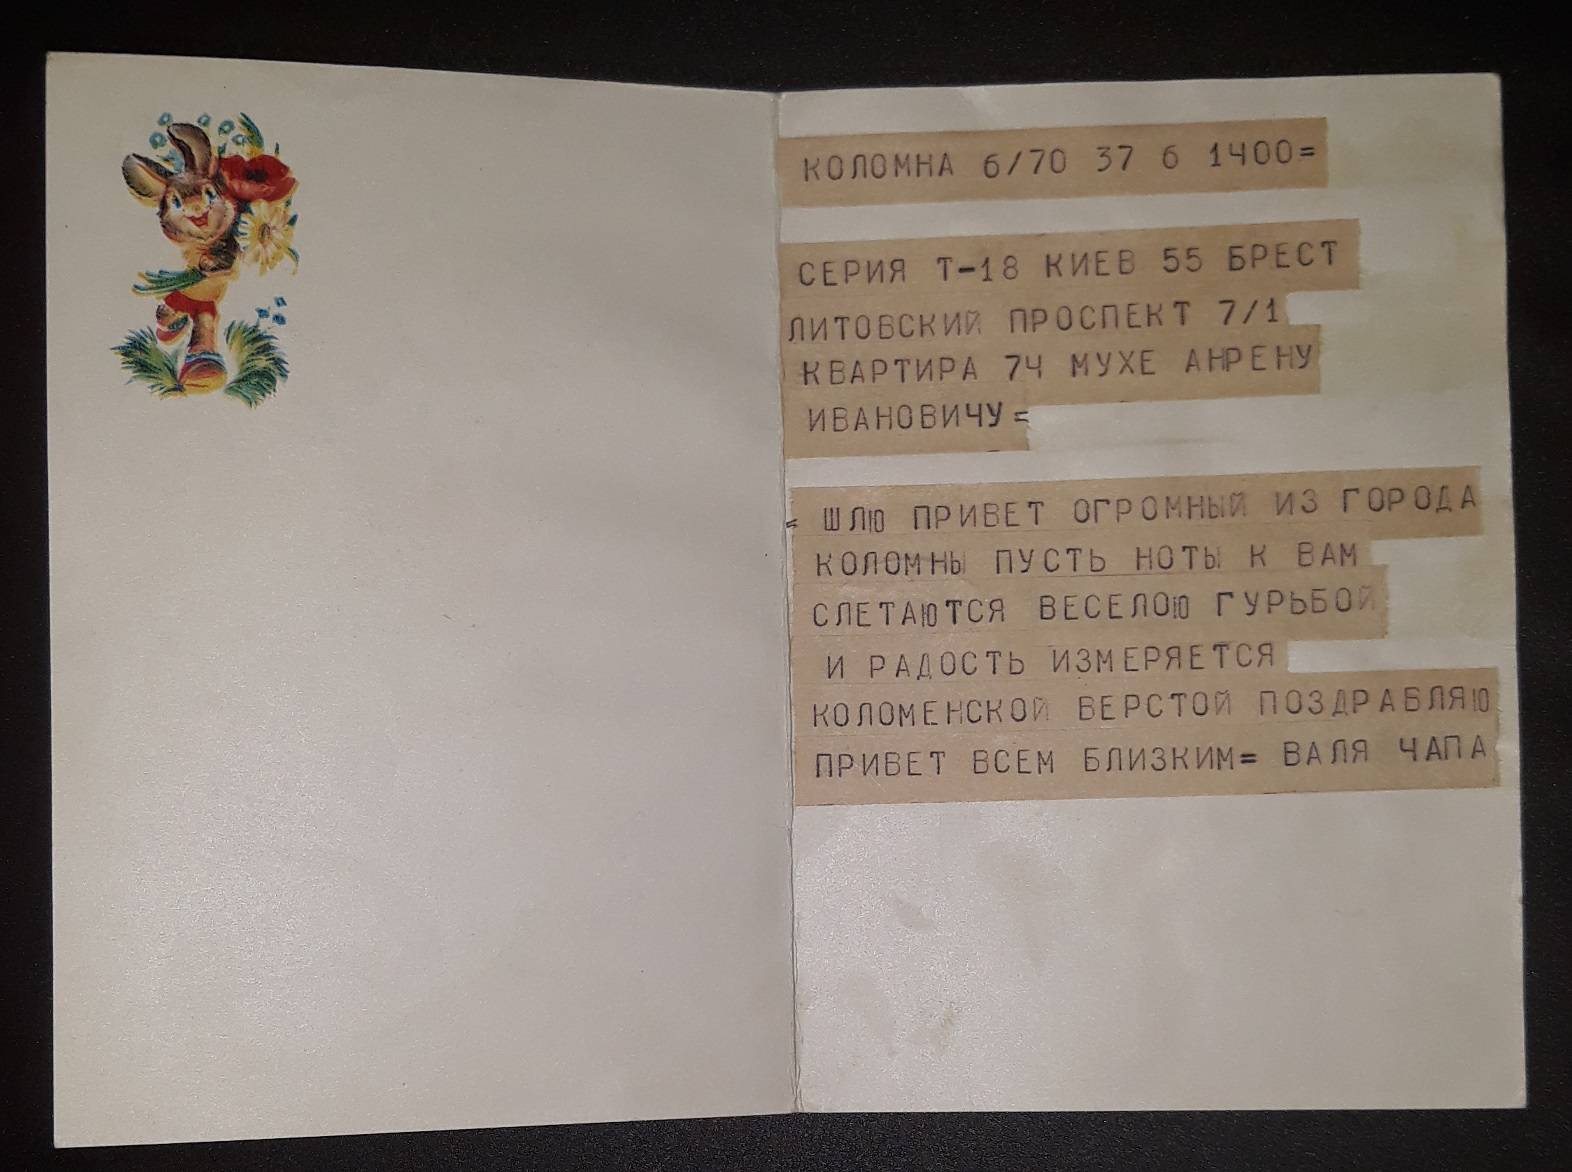 КОЛОМНА 6/70 37 6 1400=
СЕРИЯ Т-18 КИЕВ 55 БРЕСТ
ЛИТОВСКИЙ ПРОСПЕКТ 7/1
КВАРТИРА 74 МУХЕ АНРЕНУ
ИВАНОВИЧУ=
= ШЛЮ ПРИВЕТ ОГРОМНЫЙ ИЗ ГОРОДА
КОЛОМНЫ ПУСТЬ НОТЫ К ВАМ
СЛЕТАЮТСЯ ВЕСЕЛОЮ ГУРЬБОЙ
И РАДОСТЬ ИЗМЕРЯЕТСЯ
КОЛОМЕНСКОЙ ВЕРСТОЙ ПОЗДРАВЛЯЮ
ПРИВЕТ ВСЕМ БЛИЗКИМ= ВАЛЯ ЧАПА